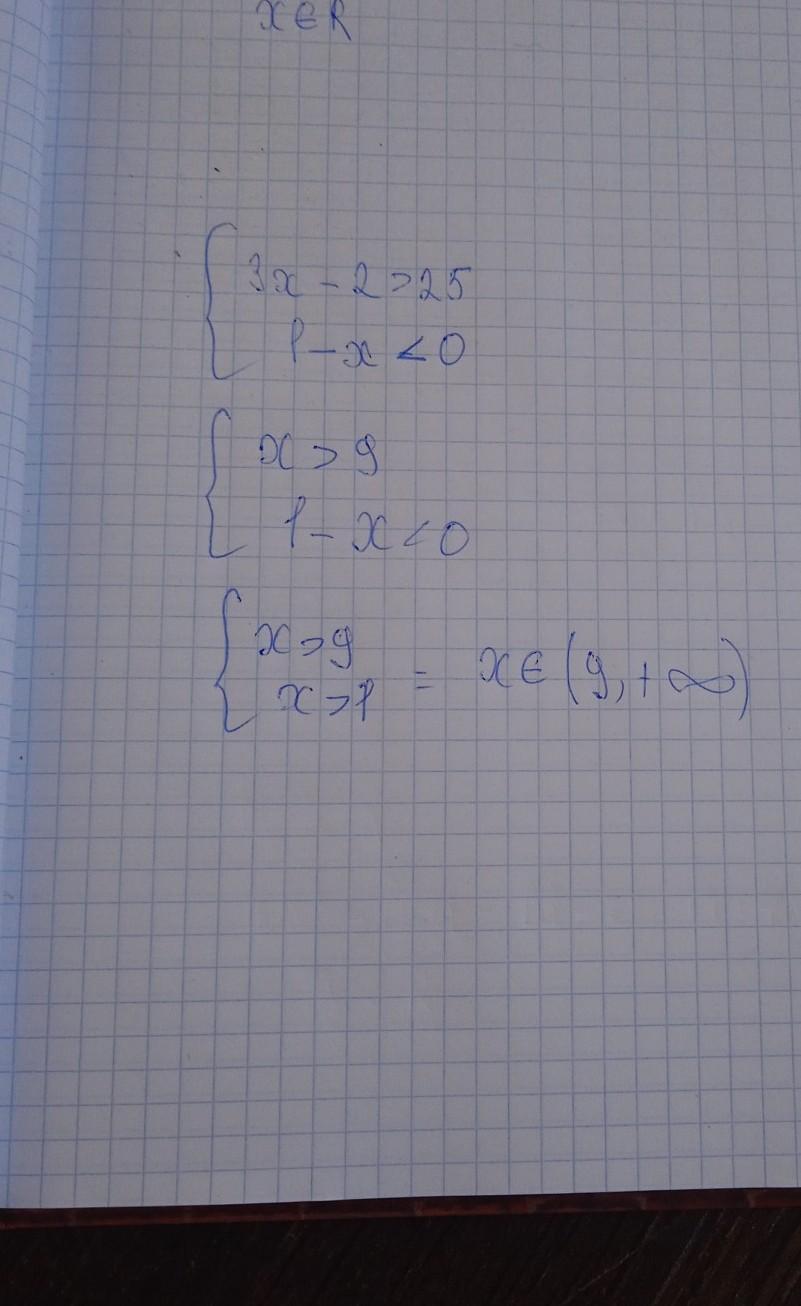 x∈R
3x-2>25
1-x<0
x>9
1-x<0
x>9
x>1 = x∈(9,+∞)